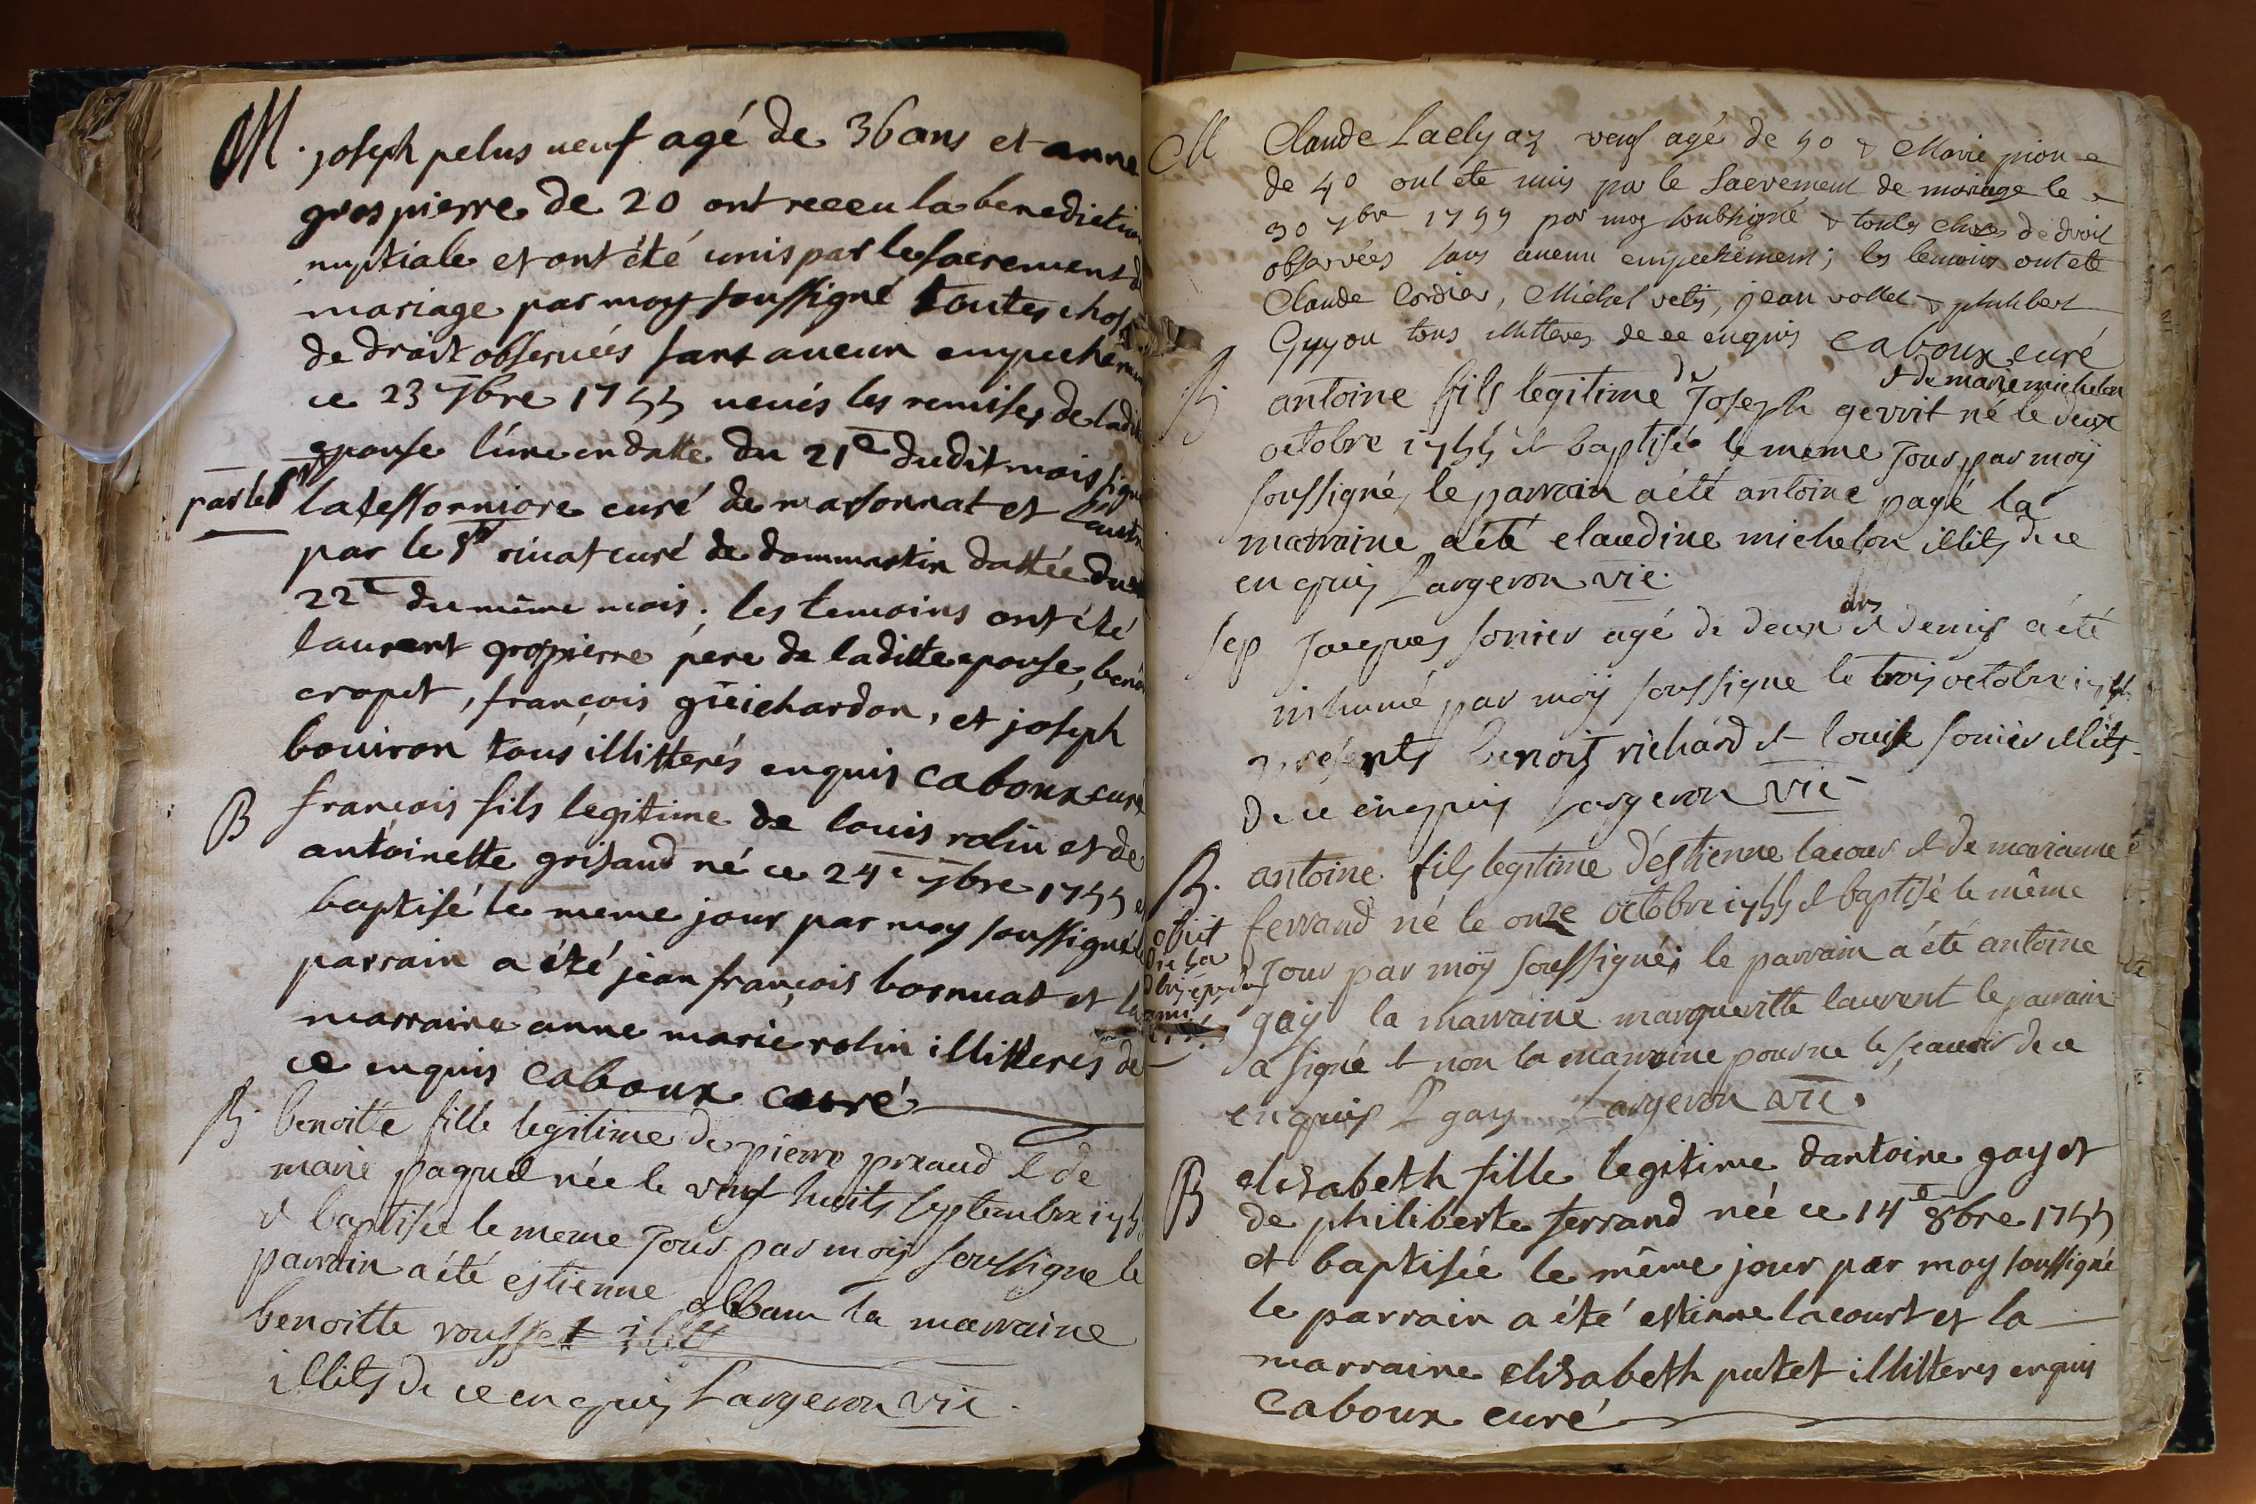 M. joseph pelus veuf agé de 36 ans et anne
grospierre de 20 ont receu la benediction
nuptiale et ont été unis par le sacrement d
mariage par moy soussigné toutes chos
de droit observées sans aucun empechem
ce 23 7bre 1755 veües les remises de ladit
epouse l'une en datte du 21e dudit mois sign
par le sr
latessonniere curé de marsonnat et l'autre
par le sr rivat curé de dommartin dattée du
22e du même mois; les temoins ont été
laurent grospierre père de laditte epouse, benoi
cropet, françois guichardon, et joseph
bouiron tous illitterés enquis caboux curé
B françois fils legitime de louis rolin et de
antoinette grisaud né ce 24e 7bre 1755 et
baptisé le meme jour par moy soussigné le
parrain a été jean françois bornuat et la
marraine anne marie rolin illitteres de
ce enquis caboux curé
B. benoitte fille legitime de pierre praud & de
marie pagud née le vingt huits septembre 175
& baptisée le meme jour par moij soussigné le
parrain a été estienne alban la marraine
benoitte rousset
illits de ce enquis Largeron vic.
M Claude Laclyaz veuf agé de 50 & Marie pion
de 40 ont ete unis par le Sacrement de mariage le
30 7bre 1755 par moy soubsigné & toutes choses de droit
observées sans aucun empechement; les temoins ont ete
Claude Cordier, Michel vetis, jean vollet & philibert
Guyon tous illitteres de ce enquis Caboux curé
& de marie michelon
B. antoine fils legitime de Joseph gerrit né le deux
octobre 1755 & baptisé le meme jour par moij
soussigné, le parrain a été antoine pagé la
marraine a été claudine michelon illits de ce
enquis Largeron vic.
Sep Jacques sonier agé de deux ans & demis a été
inhumé par moij soussigne le trois octobre 1755
presents benoit richard & louise sonier illits
de ce enquis Largeron vic
B. antoine fils legitime d'estienne lacour & de marianne
ferrand né le onze octobre 1755 & baptisé le même
obiit
jour par moij soussigné; le parrain a été antoine
gaÿ la marraine margueritte laurent le parrain
a signé & non la marraine pour ne le sçauoir de ce
enquis gay Largeron vic.
B elisabeth fille legitime dantoine gay et
de philiberte ferrand née ce 14e 8bre 1755
et baptisée le même jour par moy soussigné
le parrain a été estienne lacourt et la
marraine elisabeth putet illitteres enquis
Caboux curé